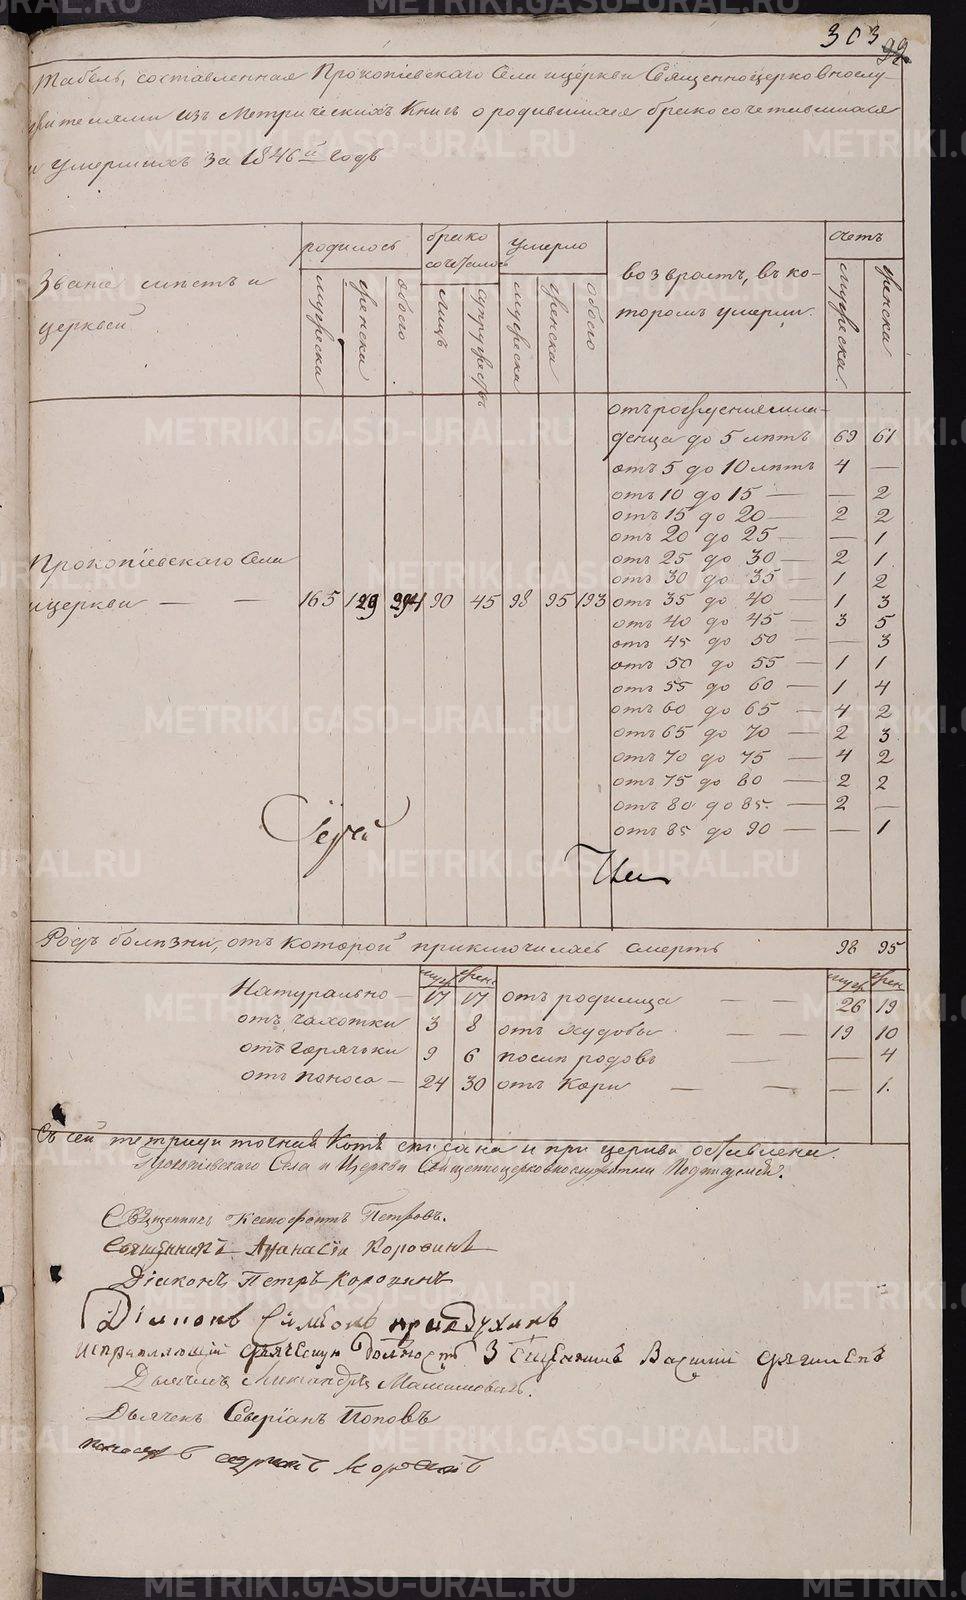 303
99
Табель, составленная Прокопіевскаго Села и церкви Священноцерковнослу-
жителями изъ Метрическихъ Книгъ о родившихся бракосочетавшихся
и умершихъ за 1846й годъ
Званіе мѣстъ и церквей
родилось
мужеска
женска
обоего
брако сочеталось
лицъ
супружествъ
умерло
мужеска
женска
обоего
возврастъ, въ ко-
торомъ умерли.
счетъ
мужеска.
женска
отъ рожденія мла-
денца до 5 лѣтъ 69 61
отъ 5 до 10 лѣтъ 4 —
отъ 10 до 15 — — 2
отъ 15 до 20 — 2 2
отъ 20 до 25 — — 1
отъ 25 до 30 — 2 1
отъ 30 до 35 — 1 2
Прокопіевскаго Села
и церкви — — 165 129 294 90 45 98 95 193
отъ 35 до 40 — 1 3
отъ 40 до 45 — 3 5
отъ 45 до 50 — — 3
отъ 50 до 55 — 1 1
отъ 55 до 60 — 1 4
отъ 60 до 65 — 4 2
отъ 65 до 70 — 2 3
отъ 70 до 75 — 4 2
отъ 75 до 80 — 2 2
отъ 80 до 85. — 2 —
отъ 85 до 90 — — 1
Родъ болѣзни, отъ которой приключилась смерть 98 95
муж. жен. муж. жен.
Натурально — 17 17 отъ родимца — — 26 19
отъ чахотки 3 8 отъ худобы — — 19 10
отъ горячки 9 6 послѣ родовъ — — 4
отъ поноса — 24 30 отъ Кори — — — 1.
Съ сей тетради точная Копія списана и при церкви оставлена.
Прокопіевскаго Села и Церкви Священноцерковнослужители Подписуемся:
Священникъ Ксенофонтъ Петровъ.
Священникъ Афанасій Коровинъ
Діаконъ Петръ Коровинъ
Діаконъ Симеонъ
Исправляющій дьяческую должность Василій
Дьячекъ
Дьячекъ Северіанъ Поповъ
METRIKI.GASO-URAL.RU